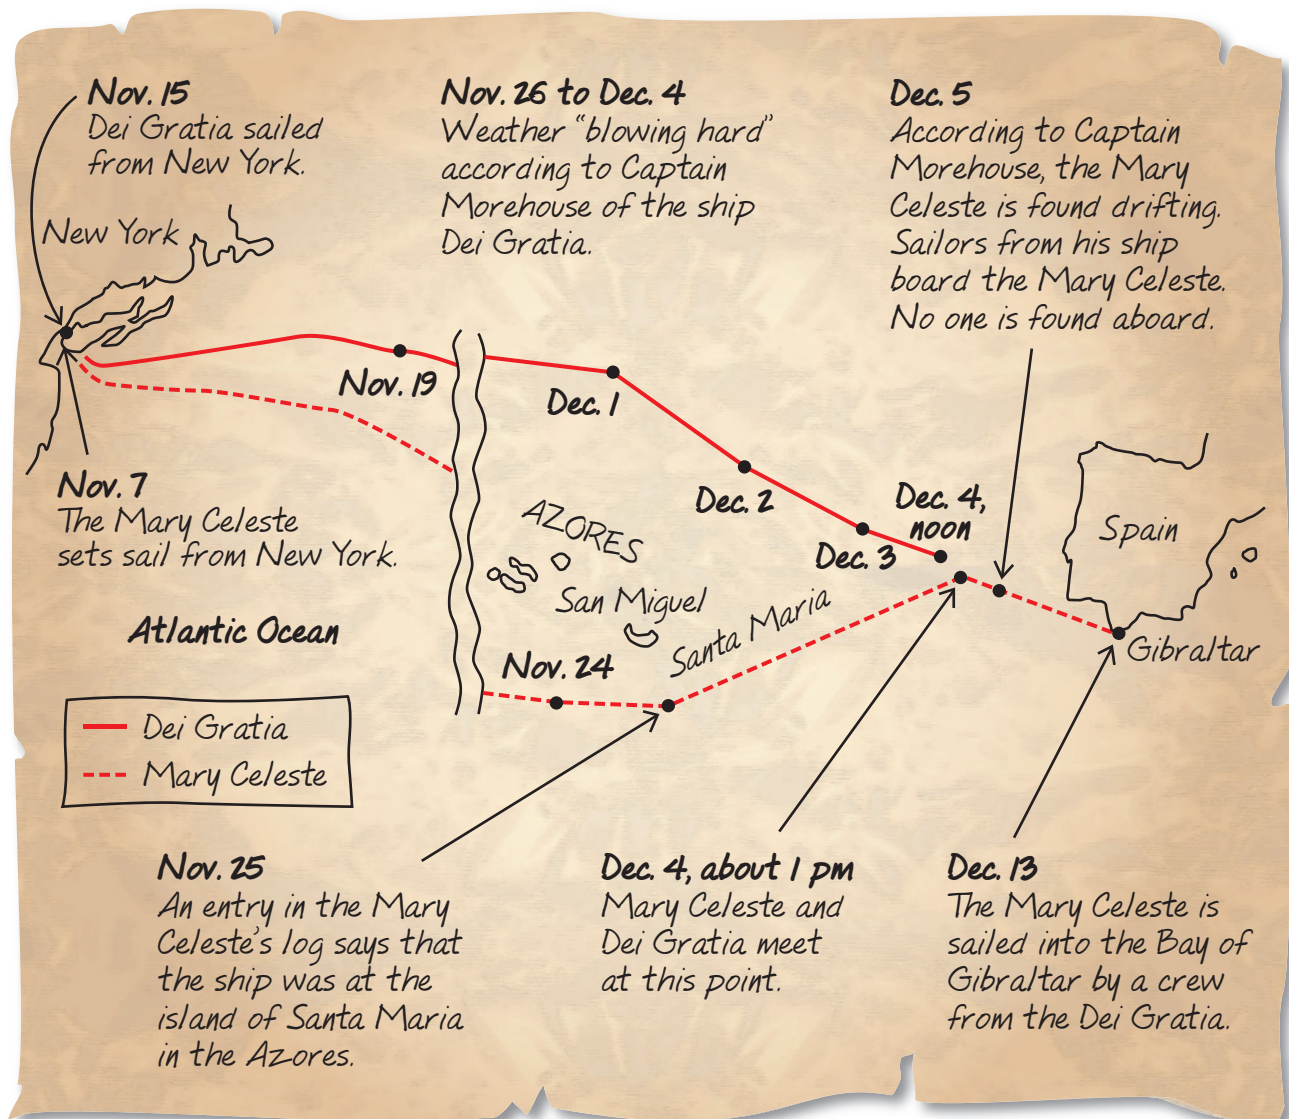 Nov. 15
Dei Gratia sailed
from New York.
New York
Nov. 26 to Dec. 4
Weather “blowing hard”
according to Captain
Morehouse of the ship
Dei Gratia.
Dec. 5
According to Captain
Morehouse, the Mary
Celeste is found drifting.
Sailors from his ship
board the Mary Celeste.
No one is found aboard.
Nov. 19
Dec. 1
Dec. 2
Dec. 3
Dec. 4,
noon
Nov. 7
The Mary Celeste
sets sail from New York.
Atlantic Ocean
AZORES
San Miguel
Santa Maria
Nov. 24
Spain
Gibraltar
Dei Gratia
Mary Celeste
Nov. 25
An entry in the Mary
Celeste’s log says that
the ship was at the
island of Santa Maria
in the Azores.
Dec. 4, about 1 pm
Mary Celeste and
Dei Gratia meet
at this point.
Dec. 13
The Mary Celeste is
sailed into the Bay of
Gibraltar by a crew
from the Dei Gratia.